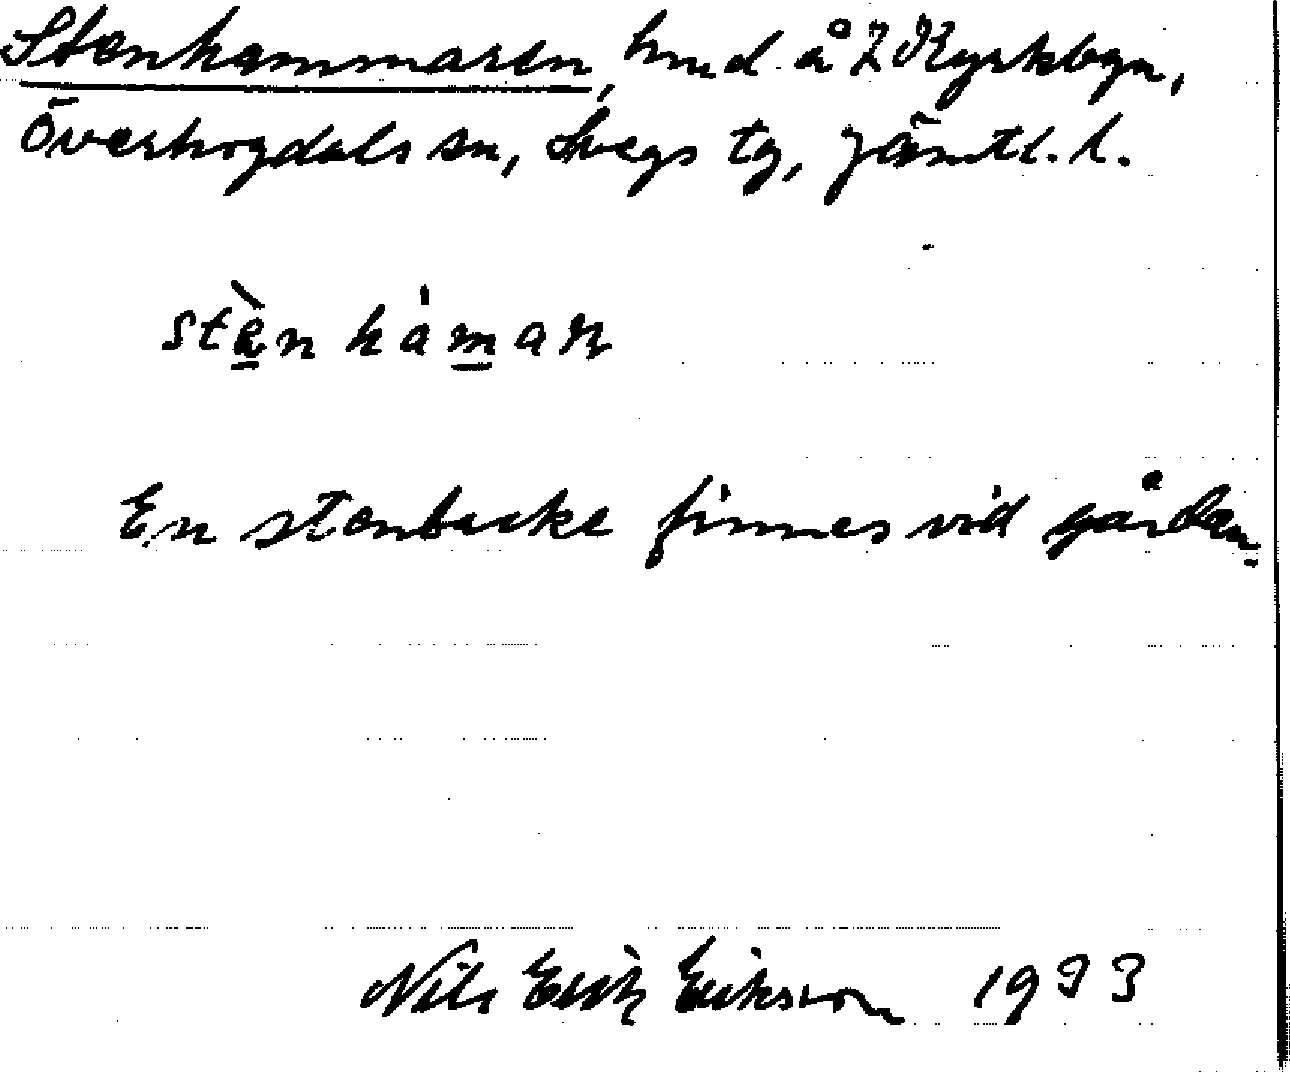 Stenhammaren, hmd å 2 Kyrkbyn,
Överhogdals sn, Svegs tg, Jämtl. l.
stèn hámaṛ
En stenbacke finnes vid gården
Nils Erik Eriksson 1933